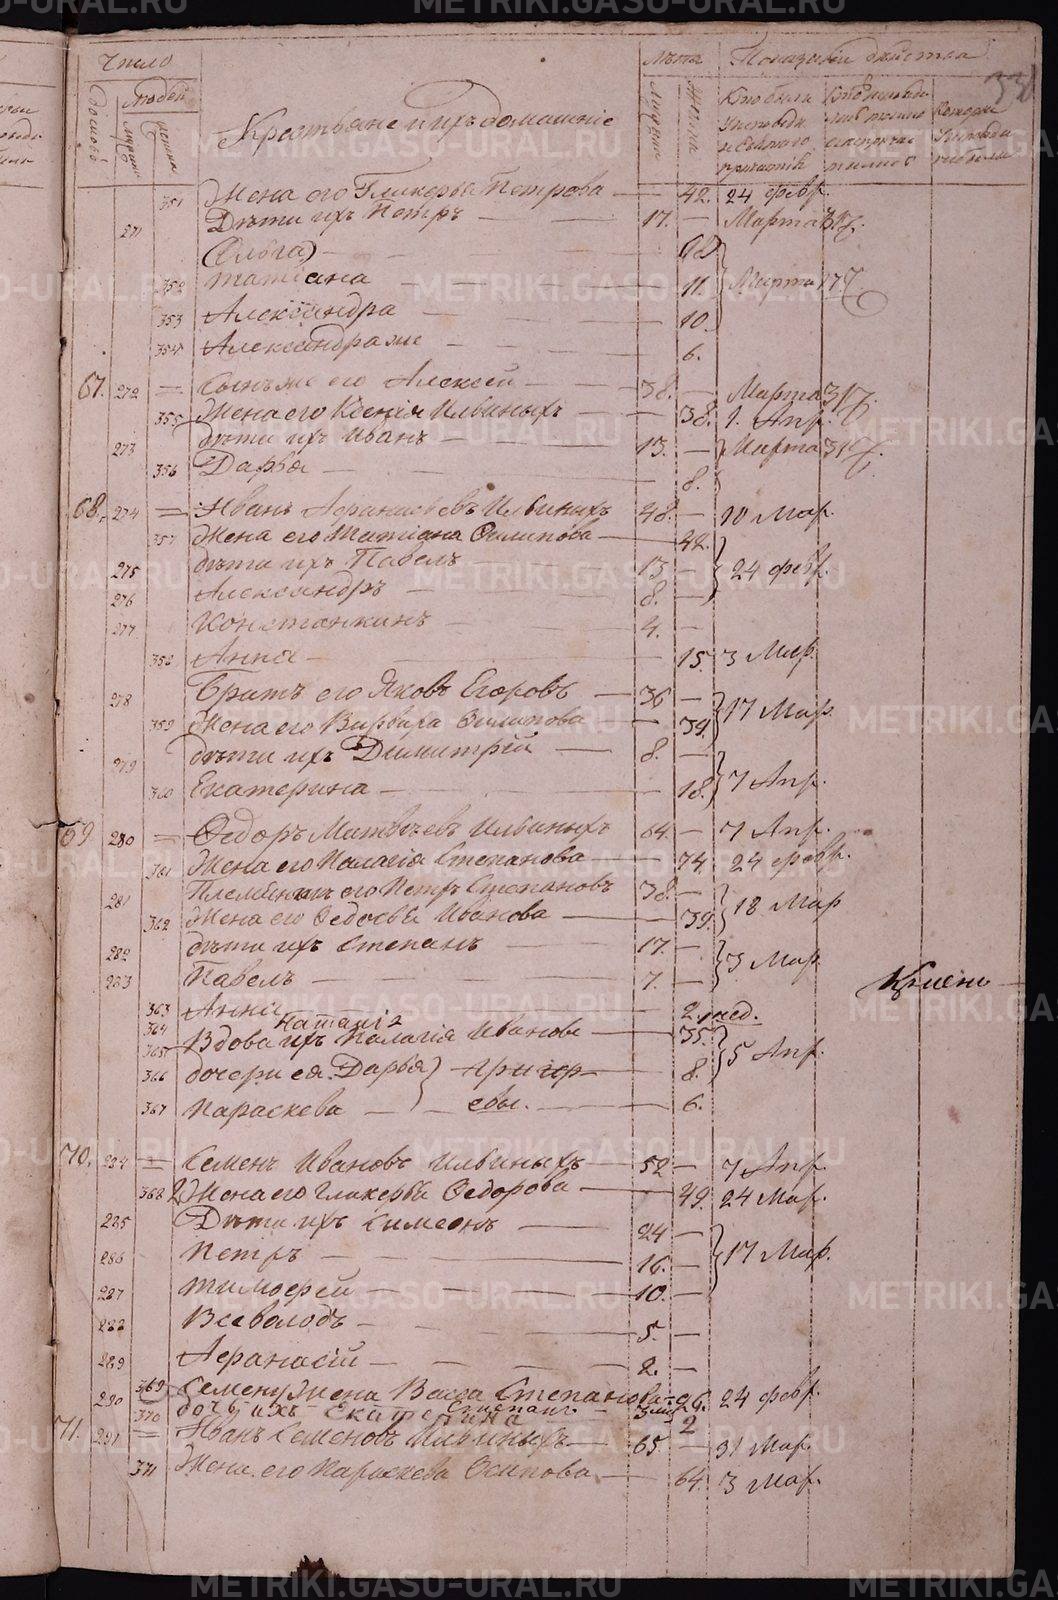 Число
Людей
домовъ
мужска
женска
Крестьяне и ихъ домашніе
Лѣта
Мужска
Женска
Показаніи бытства
Кто были
у исповѣди
и Святаго
причастія
330
351 Жена его Гликерья Петрова — 42. 24 февр.
271 Дѣти ихъ Петръ — 17. — Марта 31
(Ольга) — 12
352 Татіана — 11. Марта 17
353 Александра — 10.
354 Александра же — 6.
67. 272 — Сынъ же его Алексѣй — 38. — Марта 31
355 Жена его Ксенія Ильиныхъ — 38. 1. Апр.
273 дѣти ихъ Иванъ — 13. — Марта 31
356 Дарья — 8.
68. 274 — Иванъ Афанасьевъ Ильиныхъ 48. — 10 Мар.
357 Жена его Татіана Осипова — 42.
275 дѣти ихъ Павелъ — 13 — 24 февр.
276 Александръ — 8. —
277 Константинъ — 4. —
358 Анна — 15. 3 Мар.
278 Братъ его Яковъ Егоровъ — 36 —
359 Жена его Варвара Осипова — 39. 17 Мар.
279 дѣти ихъ Димитрій — 8. —
360 Екатерина — 18. 7 Апр.
69 280 — Ѳедоръ Матвѣевъ Ильиныхъ 64. — 7 Апр.
361 Жена его Палагія Степанова — 74. 24 февр.
281 Племянникъ его Петръ Степановъ 38. —
362 Жена его Ѳедосья Иванова — 39. 18 Мар
282 дѣти ихъ Степанъ — 17. —
283 Павелъ — 7. — 3 Мар.
363 Анна — 2. нед.
364 Наталія
365 Вдова ихъ Палагія Иванова — 35.
366 дочери ея Дарья) Григор — 8. 5 Апр.
367 Параскева — евы. — 6.
70. 284 — Семенъ Ивановъ Ильиныхъ — 52 — 7 Апр.
368 Жена его Гликерья Ѳедорова — 49. 24 Мар.
285 Дѣти ихъ Симеонъ — 24 —
286 Петръ — 16. — 17 Мар.
287 Тимоѳей — 10. —
288 Всеволодъ — 5. —
289 Афанасій — 2. —
290 369 Семену жена Васса Степанова — 26. 24 февр.
370 дочь ихъ Екатерина
Степанъ — 2
71. 291 — Иванъ Семеновъ Ильиныхъ — 65 — 31 Мар.
371 Жена его Параскева Осипова — 64. 3 Мар.
METRIKI.GASO-URAL.RU